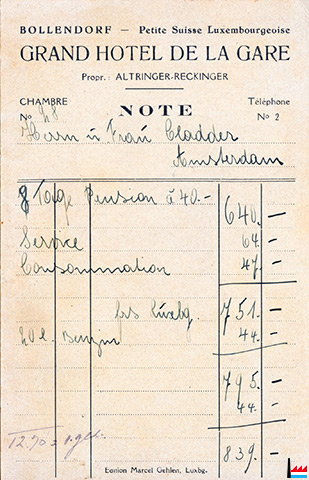 BOLLENDORF — Petite Suisse Luxembourgeoise
GRAND HOTEL DE LA GARE
Propr.: ALTRINGER-RECKINGER
CHAMBRE
No 28
NOTE
Téléphone
No 2
Herrn u Frau Cladder
Amsterdam
8 Tage Pension à 40.- 640.-
Service 64.-
Consommation 47.-
frs Luxbg. 751.-
20 l. Benzin 44.-
795.-
44.-
839.-
Edition Marcel Gehlen, Luxbg.